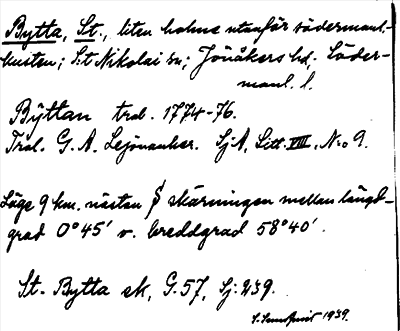 Bytta, St., liten holme utanför södermanl.-
kusten; S:t Nikolai sn; Jönåkers hd. Söder-
manl. l.
Byttan trol. 1774-76.
Trol. G. A. Lejonancker. SjA, Litt. VIII, N:o 9.
Läge 9 km. nästan S skärningen mellan längd-
grad 0°45' v. breddgrad 58°40'.
St. Bytta ek, G.57, Sj: 239.
1939.